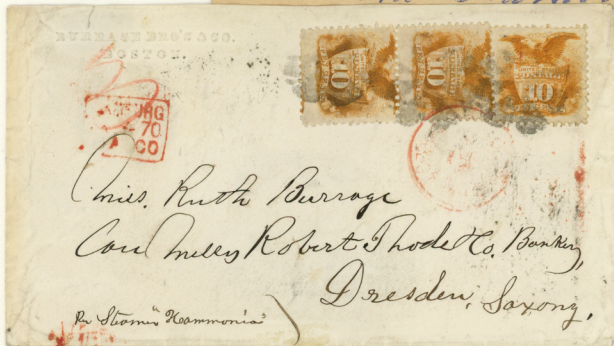 BURRAGE BRO'S & CO.
BOSTON.
10
10
10
BURG
70
CO
Miss. Ruth Burrage
Care Messrs Robert Thode & Co. Bankers,
Dresden, Saxony,
Per Steamer "Hammonia"